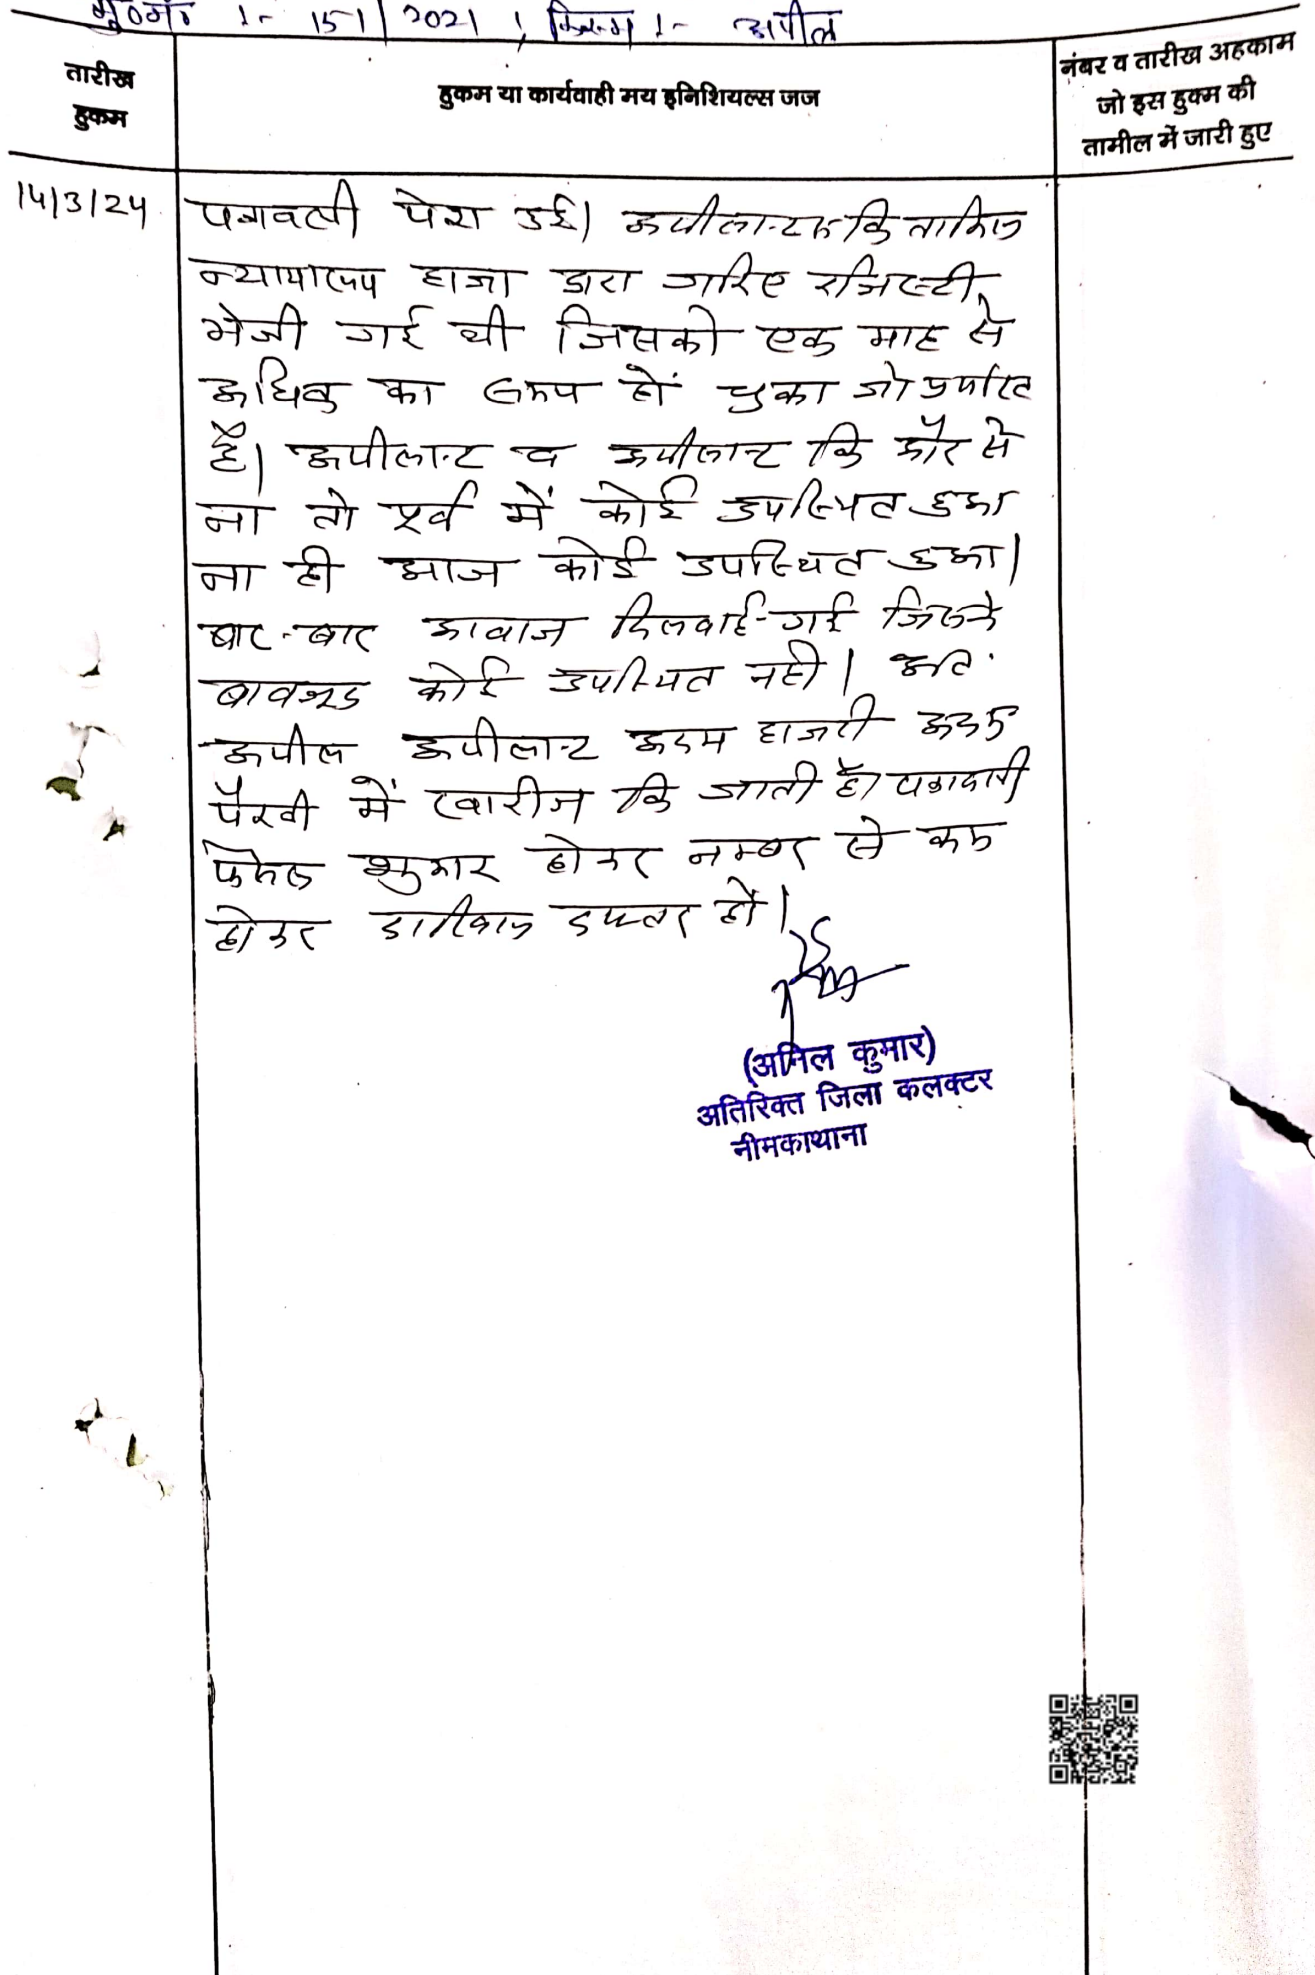 मु०नं० :- 151/2021 , किस्म :- अपील
तारीख
हुकम
हुकम या कार्यवाही मय इनिशियल्स जज
नंबर व तारीख अहकाम
जो इस हुक्म की
तामील में जारी हुए
14/3/24
पत्रावली पेश हुई। अपीलान्टस कि तामिल
न्यायालय हाजा द्वारा जरिए रजिस्टी
भेजी गई थी जिसको एक माह से
अधिक का समय हों चुका जो पर्याप्त
है। अपीलान्ट व अपीलान्ट कि और से
ना तो पूर्व में कोई उपस्थित हुआ
ना ही आज कोई उपस्थित हुआ।
बार-बार आवाज दिलवाई गई जिसके
बावजूद कोई उपस्थित नही। अतः
अपील अपीलान्ट अदम हाजरी अदम
पैरवी में खारीज कि जाती है। पत्रावली
फैसल शुमार होकर नम्बर से कम
होकर दाखिल दफ्तर हों।
(अनिल कुमार)
अतिरिक्त जिला कलक्टर
नीमकाथाना